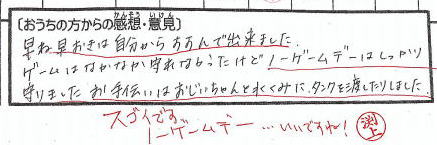 [おうちの方からの感想・意見]
早ね早おきは自分からすすんで出来ました.
ゲームはなかなか守れなかったけどノーゲームデーはしっかり
守りました お手伝いはおじいちゃんと水くみに、タンクを渡したりしました
スゴイです
ノーゲームデー…いいですね!
渕上